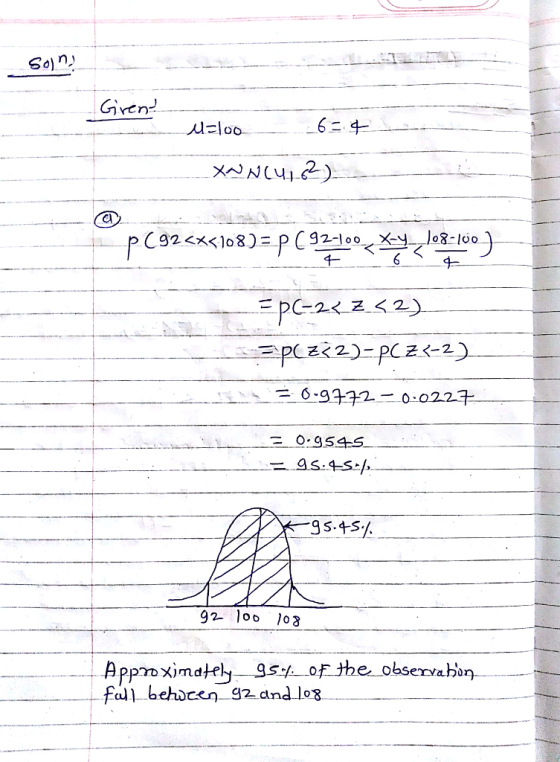 Soln:
Given:
μ=100 σ=4
X~N(μ,σ²)
(a)
P(92<x<108)=P(92-100/4 < x-μ/σ < 108-100/4)
=P(-2< z <2)
=P(z<2)-P(z<-2)
= 0.9772 - 0.0227
= 0.9545
= 95.45%
95.45%
92 100 108
Approximately 95% of the observation
fall between 92 and 108